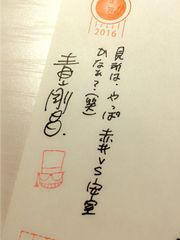 2016
見所は、やっぱ 赤井VS安室
かなぁ?(笑)
青山剛昌.